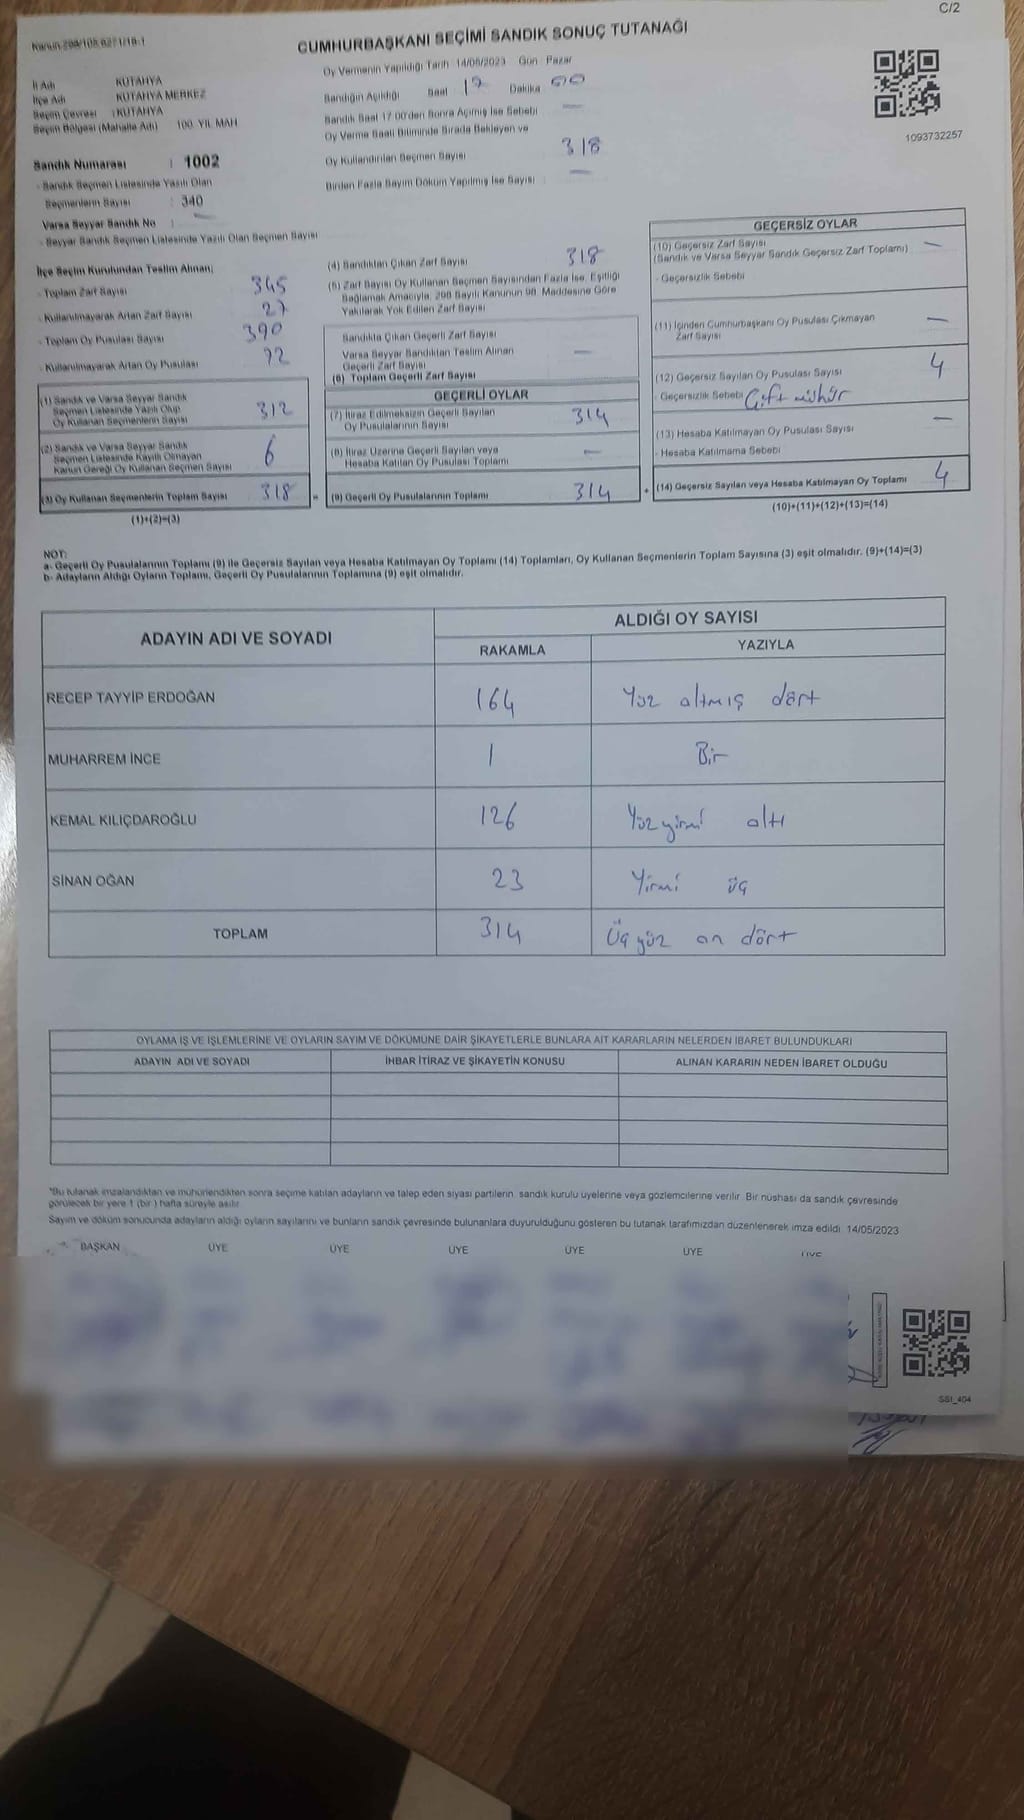 C/2
Kanun 298/105,6271/18-1
CUMHURBAŞKANI SEÇİMİ SANDIK SONUÇ TUTANAĞI
İl Adı KÜTAHYA
İlçe Adı KÜTAHYA MERKEZ
Seçim Çevresi : KÜTAHYA
Seçim Bölgesi (Mahalle Adı) 100. YIL MAH.
Sandık Numarası : 1002
- Sandık Seçmen Listesinde Yazılı Olan
Seçmenlerin Sayısı : 340
Varsa Seyyar Sandık No : —
- Seyyar Sandık Seçmen Listesinde Yazılı Olan Seçmen Sayısı
Oy Vermenin Yapıldığı Tarih 14/05/2023 Gün : Pazar
Sandığın Açıldığı Saat 17 Dakika 00
Sandık Saat 17.00'den Sonra Açılmış İse Sebebi —
Oy Verme Saati Bitiminde Sırada Bekleyen ve
Oy Kullandırılan Seçmen Sayısı 318
Birden Fazla Sayım Döküm Yapılmış İse Sayısı : —
1093732257
İlçe Seçim Kurulundan Teslim Alınan;
- Toplam Zarf Sayısı 345
- Kullanılmayarak Artan Zarf Sayısı 27
- Toplam Oy Pusulası Sayısı 390
- Kullanılmayarak Artan Oy Pusulası 72
(1) Sandık ve Varsa Seyyar Sandık
Seçmen Listesinde Yazılı Olup
Oy Kullanan Seçmenlerin Sayısı 312
(2) Sandık ve Varsa Seyyar Sandık
Seçmen Listesinde Kayıtlı Olmayan
Kanun Gereği Oy Kullanan Seçmen Sayısı 6
(3) Oy Kullanan Seçmenlerin Toplam Sayısı 318 =
(1)+(2)=(3)
(4) Sandıktan Çıkan Zarf Sayısı 318
(5) Zarf Sayısı Oy Kullanan Seçmen Sayısından Fazla İse, Eşitliği
Sağlamak Amacıyla, 298 Sayılı Kanunun 98. Maddesine Göre
Yakılarak Yok Edilen Zarf Sayısı
Sandıkta Çıkan Geçerli Zarf Sayısı
Varsa Seyyar Sandıktan Teslim Alınan —
Geçerli Zarf Sayısı
(6) Toplam Geçerli Zarf Sayısı
GEÇERLİ OYLAR
(7) İtiraz Edilmeksizin Geçerli Sayılan
Oy Pusulalarının Sayısı 314
(8) İtiraz Üzerine Geçerli Sayılan veya
Hesaba Katılan Oy Pusulası Toplamı —
(9) Geçerli Oy Pusulalarının Toplamı 314 +
GEÇERSİZ OYLAR
(10) Geçersiz Zarf Sayısı —
(Sandık ve Varsa Seyyar Sandık Geçersiz Zarf Toplamı)
- Geçersizlik Sebebi
(11) İçinden Cumhurbaşkanı Oy Pusulası Çıkmayan —
Zarf Sayısı
(12) Geçersiz Sayılan Oy Pusulası Sayısı 4
- Geçersizlik Sebebi Çift mühür
(13) Hesaba Katılmayan Oy Pusulası Sayısı —
- Hesaba Katılmama Sebebi
(14) Geçersiz Sayılan veya Hesaba Katılmayan Oy Toplamı 4
(10)+(11)+(12)+(13)=(14)
NOT:
a- Geçerli Oy Pusulalarının Toplamı (9) ile Geçersiz Sayılan veya Hesaba Katılmayan Oy Toplamı (14) Toplamları, Oy Kullanan Seçmenlerin Toplam Sayısına (3) eşit olmalıdır. (9)+(14)=(3)
b- Adayların Aldığı Oyların Toplamı, Geçerli Oy Pusulalarının Toplamına (9) eşit olmalıdır.
ADAYIN ADI VE SOYADI ALDIĞI OY SAYISI
RAKAMLA YAZIYLA
RECEP TAYYİP ERDOĞAN 164 Yüz altmış dört
MUHARREM İNCE 1 Bir
KEMAL KILIÇDAROĞLU 126 Yüz yirmi altı
SİNAN OĞAN 23 Yirmi üç
TOPLAM 314 Üç yüz on dört
OYLAMA İŞ VE İŞLEMLERİNE VE OYLARIN SAYIM VE DÖKÜMÜNE DAİR ŞİKAYETLERLE BUNLARA AİT KARARLARIN NELERDEN İBARET BULUNDUKLARI
ADAYIN ADI VE SOYADI İHBAR İTİRAZ VE ŞİKAYETİN KONUSU ALINAN KARARIN NEDEN İBARET OLDUĞU
*Bu tutanak imzalandıktan ve mühürlendikten sonra seçime katılan adayların ve talep eden siyasi partilerin sandık kurulu üyelerine veya gözlemcilerine verilir. Bir nüshası da sandık çevresinde
görülecek bir yere 1 (bir ) hafta süreyle asılır.
Sayım ve döküm sonucunda adayların aldığı oyların sayılarını ve bunların sandık çevresinde bulunanlara duyurulduğunu gösteren bu tutanak tarafımızdan düzenlenerek imza edildi. 14/05/2023
BAŞKAN ÜYE ÜYE ÜYE ÜYE ÜYE ÜYE
SSI_404